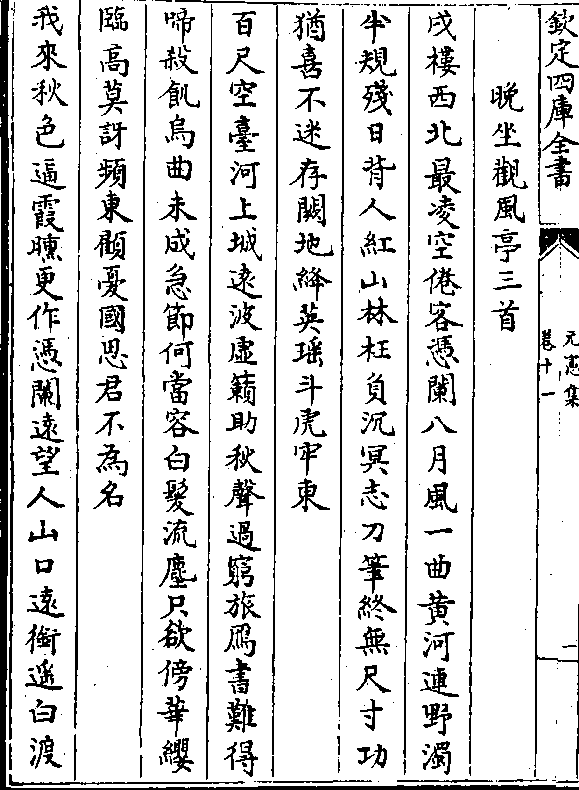 欽定四庫全書
元憲集
卷十一
二
晚坐觀風亭三首
戍樓西北最凌空倦客憑闌八月風一曲黄河連野濁
半規殘日背人紅山林枉負沉冥志刀筆終無尺寸功
猶喜不迷存闕地絳英瑶斗虎牢東
百尺空臺河上城逺波虚籟助秋聲過窮旅鴈書難得
啼殺飢烏曲未成急節何當容白髪流塵只欲傍華纓
臨高莫訝頻東顧憂國思君不為名
我來秋色逼霞曛更作憑闌逺望人山口逺銜遥白渡